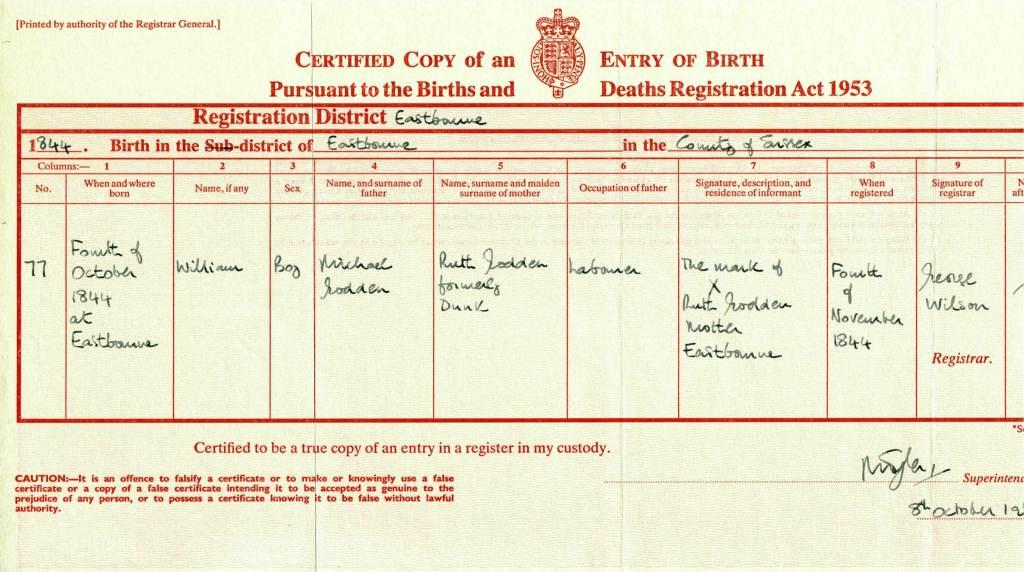 [Printed by authority of the Registrar General.]
CERTIFIED COPY of an ENTRY OF BIRTH
Pursuant to the Births and Deaths Registration Act 1953
Registration District Eastbourne
1844. Birth in the Sub-district of Eastbourne in the County of Sussex
Columns:— 1 2 3 4 5 6 7 8 9
No. When and where born Name, if any Sex Name, and surname of father Name, surname and maiden surname of mother Occupation of father Signature, description, and residence of informant When registered Signature of registrar
77
Fourth of
October
1844
at
Eastbourne
William
Boy
Michael
Hodden
Ruth Hodden
formerly
Dunk
Labourer
The mark of
X
Ruth Hodden
Mother
Eastbourne
Fourth
of
November
1844
George
Wilson
Registrar.
Certified to be a true copy of an entry in a register in my custody.
CAUTION:—It is an offence to falsify a certificate or to make or knowingly use a false
certificate or a copy of a false certificate intending it to be accepted as genuine to the
prejudice of any person, or to possess a certificate knowing it to be false without lawful
authority.
Superintend
8th October 19